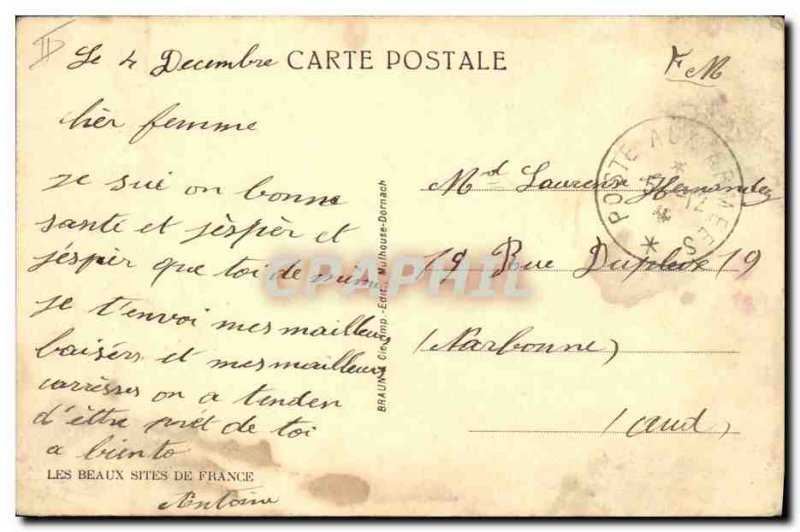 Le 4 Decembre CARTE POSTALE
F M
hier femme
je sui on bonne
sante et jéspèr et
jéspier que toi de mime
je t'envoi mes mailleurs
baisérs et mes mailleurs
carrèsses on a tenden
d'être prêt de toi
a biento
LES BEAUX SITES DE FRANCE
Antoine
BRAUN & Cie, Imp.-Edit., Mulhouse-Dornach
Md Laurence Hernandez
19 Rue Dupleix 19
(Narbonne)
(aud)
POSTE AUX ARMEES
CPAPHIL